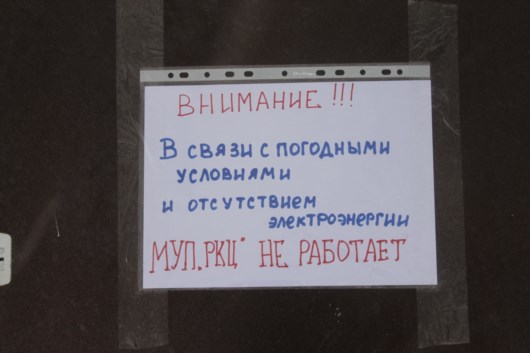 ВНИМАНИЕ!!!
В СВЯЗИ С ПОГОДНЫМИ
УСЛОВИЯМИ
И ОТСУТСТВИЕМ
ЭЛЕКТРОЭНЕРГИИ
МУП „РКЦ" НЕ РАБОТАЕТ